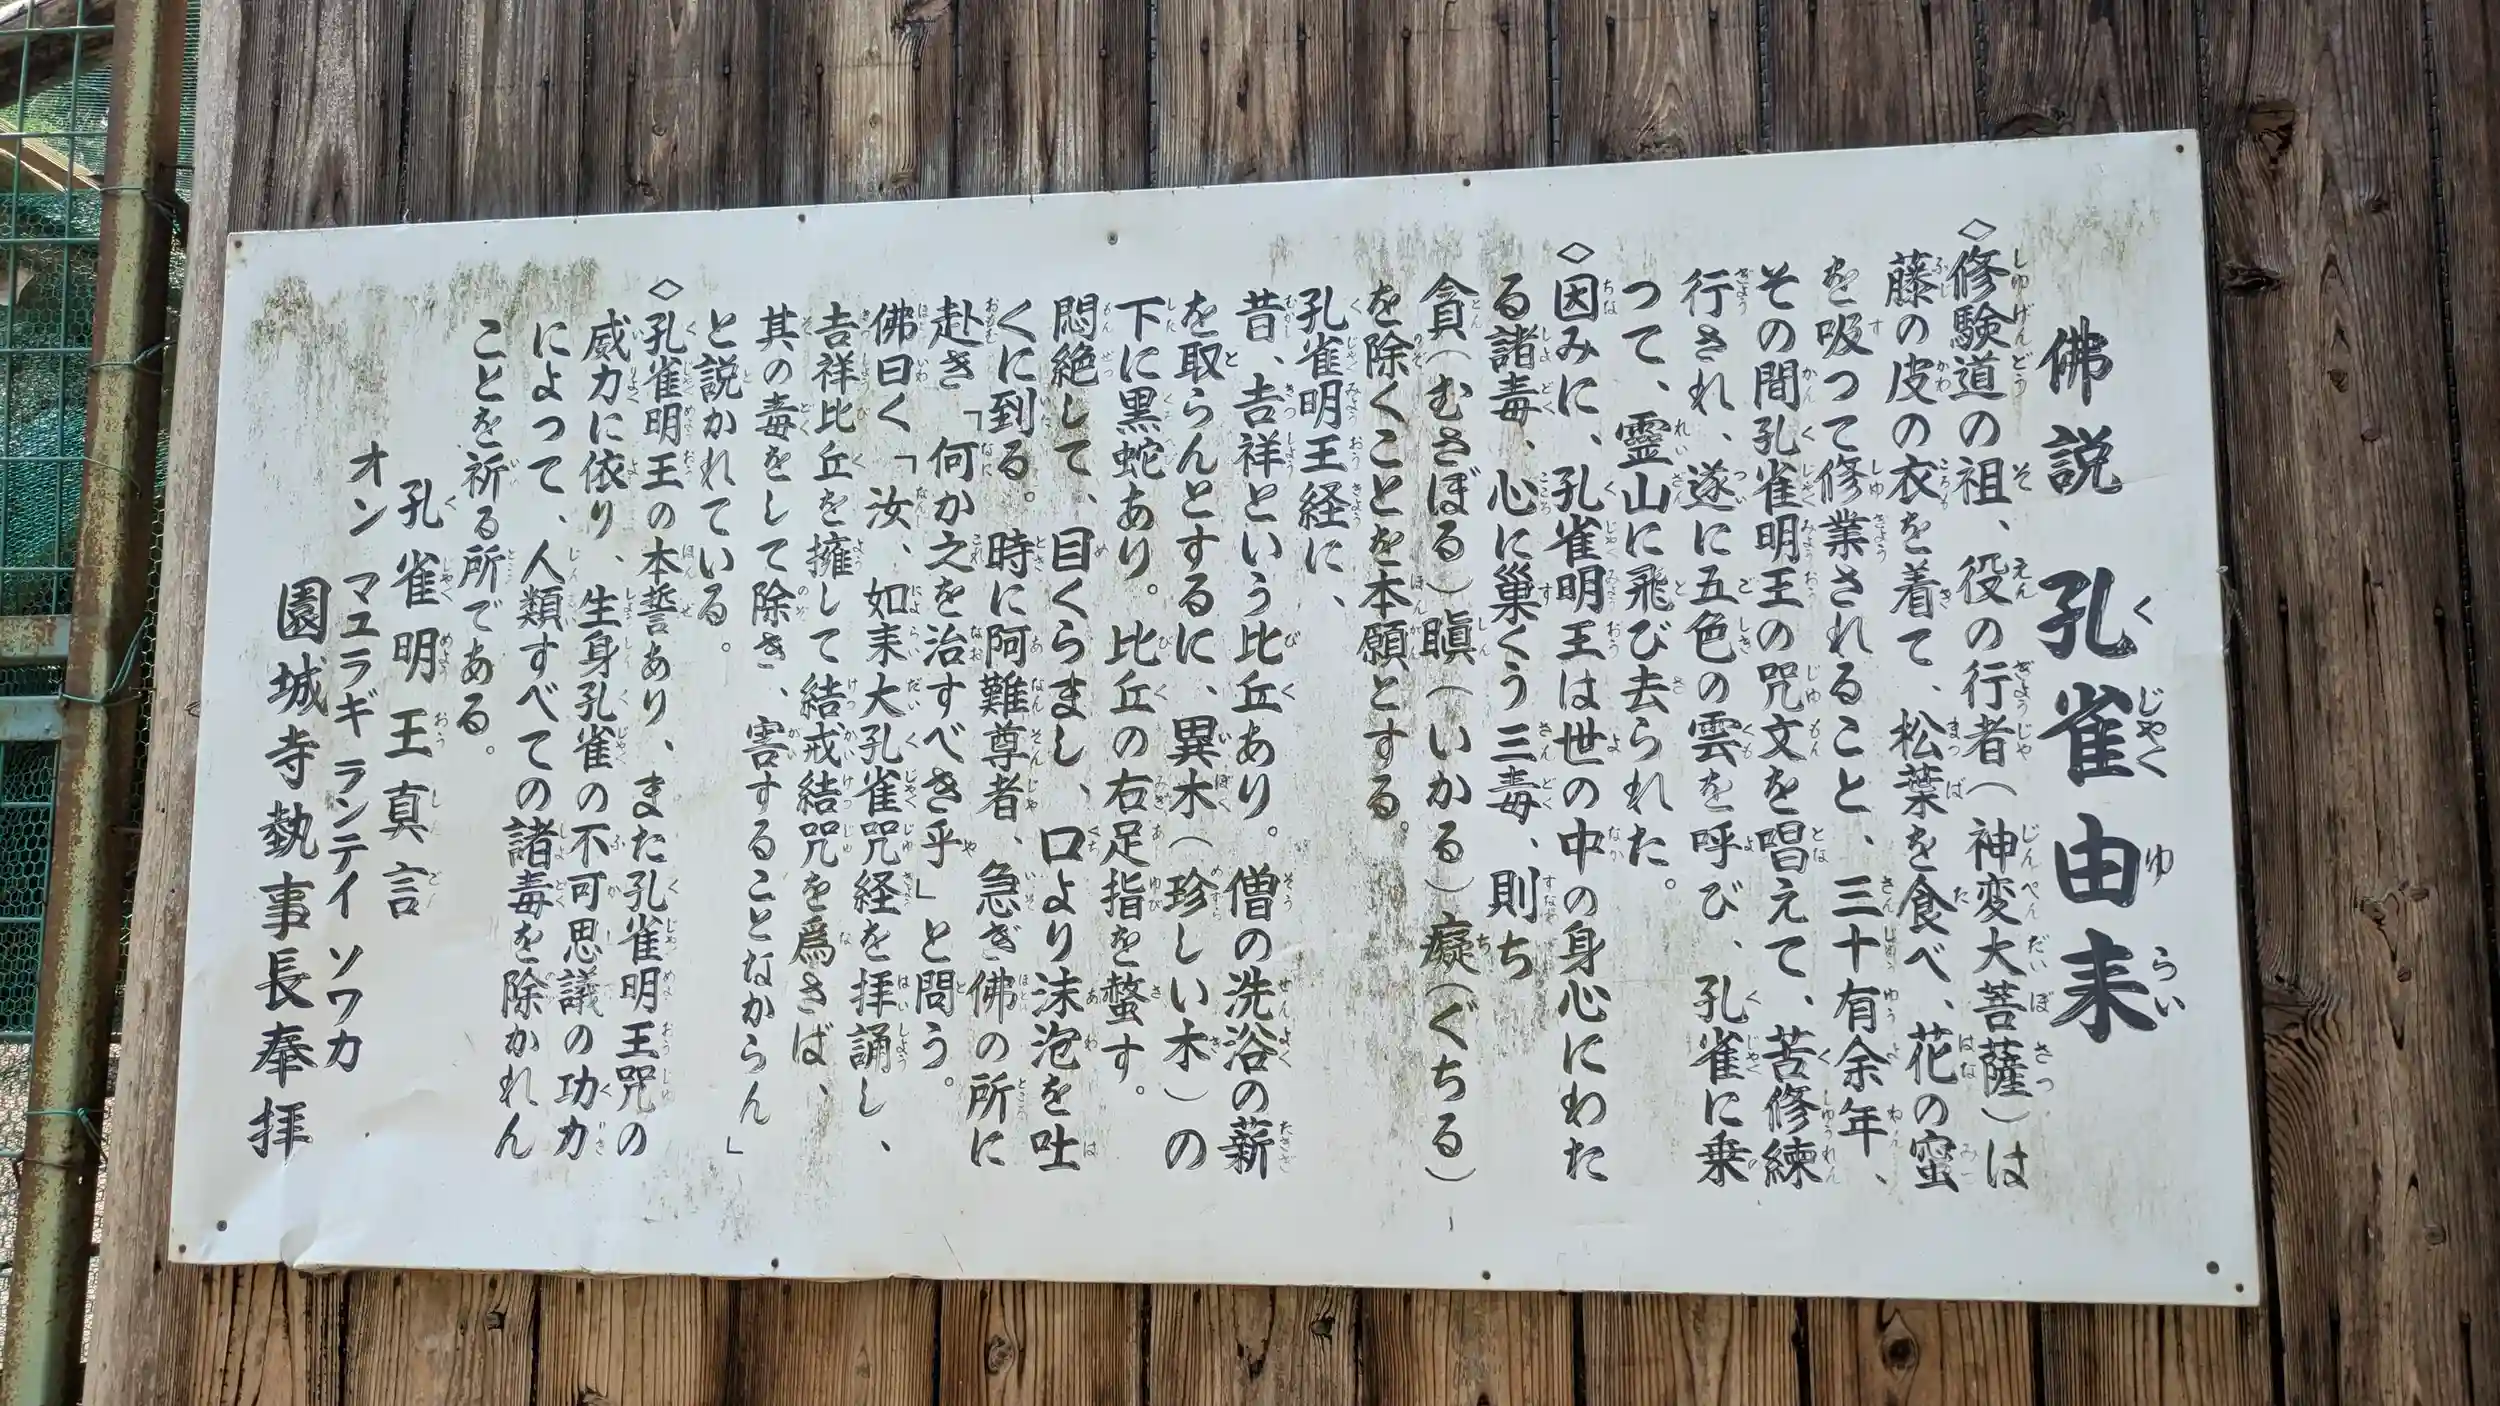 佛説 孔雀由来
◇修験道の祖、役の行者(神変大菩薩)は
藤の皮の衣を着て、松葉を食べ、花の蜜
を吸つて修業されること、三十有余年、
その間孔雀明王の咒文を唱えて、苦修練
行され、遂に五色の雲を呼び、孔雀に乗
つて、霊山に飛び去られた。
◇因みに、孔雀明王は世の中の身心にわた
る諸毒、心に巣くう三毒、則ち
貪(むさぼる)瞋(いかる)癡(ぐちる)
を除くことを本願とする。
孔雀明王経に、
昔、吉祥という比丘あり。僧の洗浴の薪
を取らんとするに、異木(珍しい木)の
下に黒蛇あり。比丘の右足指を螫す。
悶絶して、目くらまし、口より沫泡を吐
くに到る。時に阿難尊者、急ぎ佛の所に
赴き「何か之を治すべき乎」と問う。
佛曰く「汝、如来大孔雀咒経を拝誦し、
吉祥比丘を擁して結戒結咒を爲さば、
其の毒をして除き、害することなからん」
と説かれている。
◇孔雀明王の本誓あり、また孔雀明王咒の
威力に依り、生身孔雀の不可思議の功力
によって、人類すべての諸毒を除かれん
ことを祈る所である。
孔雀明王真言
オン マユラギ ランテイ ソワカ
園城寺執事長奉拝